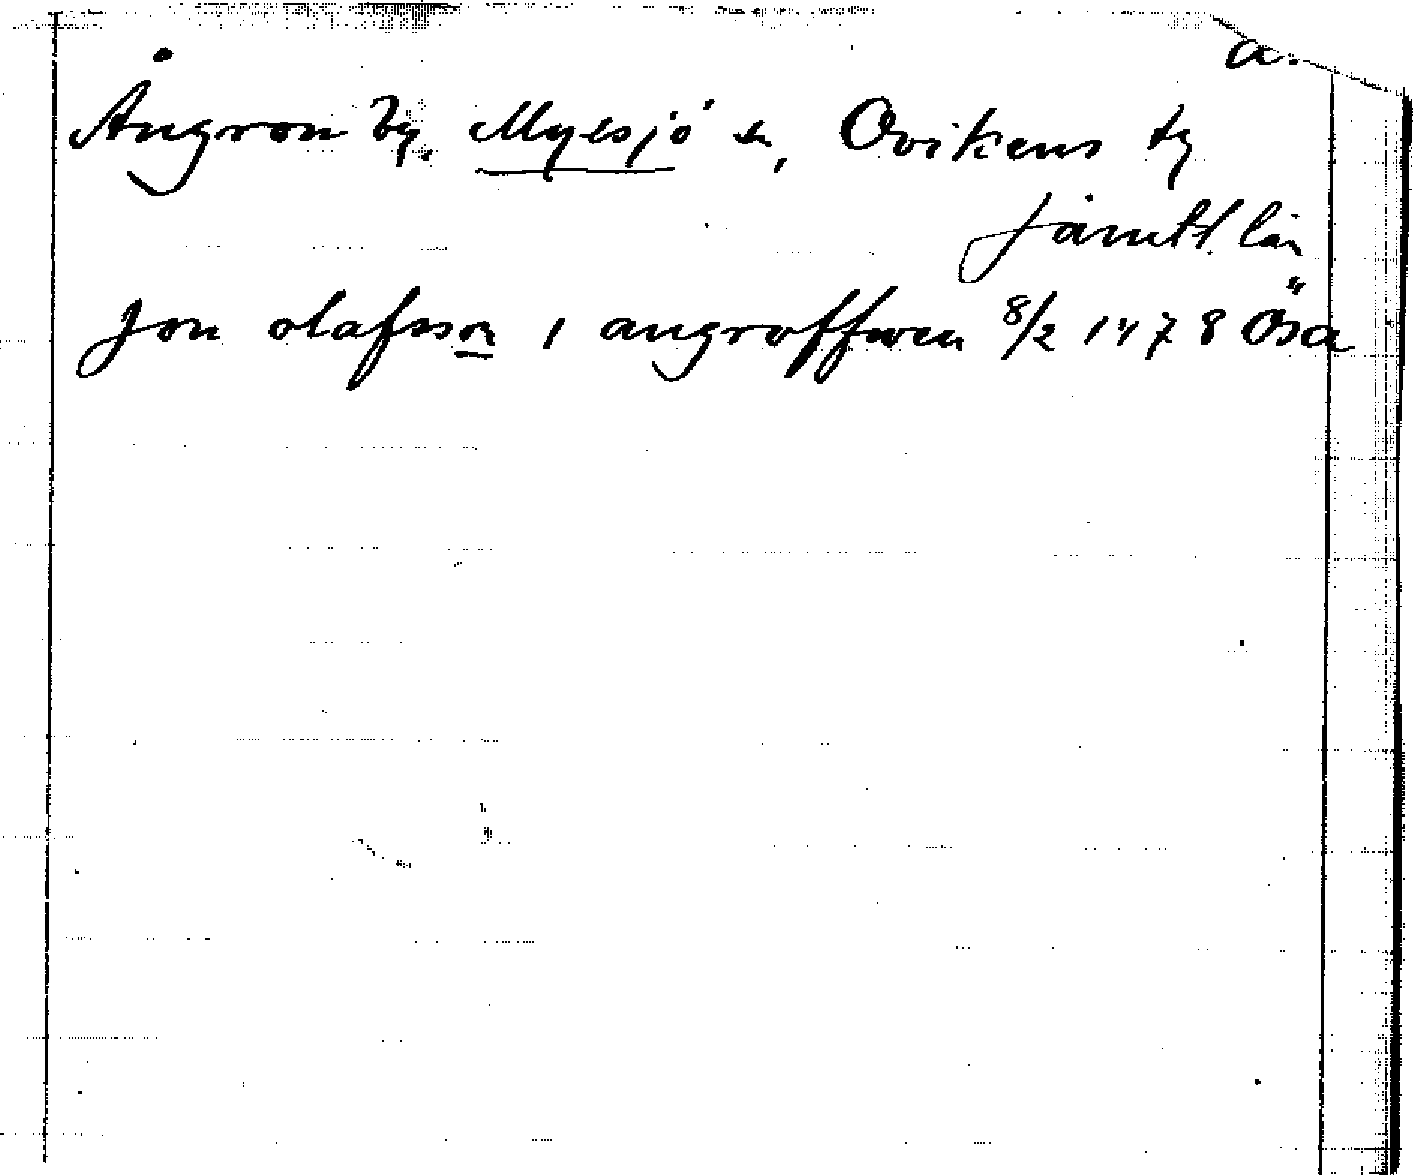 a.
Ångron by, Myssjö sn, Ovikens tg
Jämtl. län
Jon olafsson i angroffwen 8/2 1478 Ösa